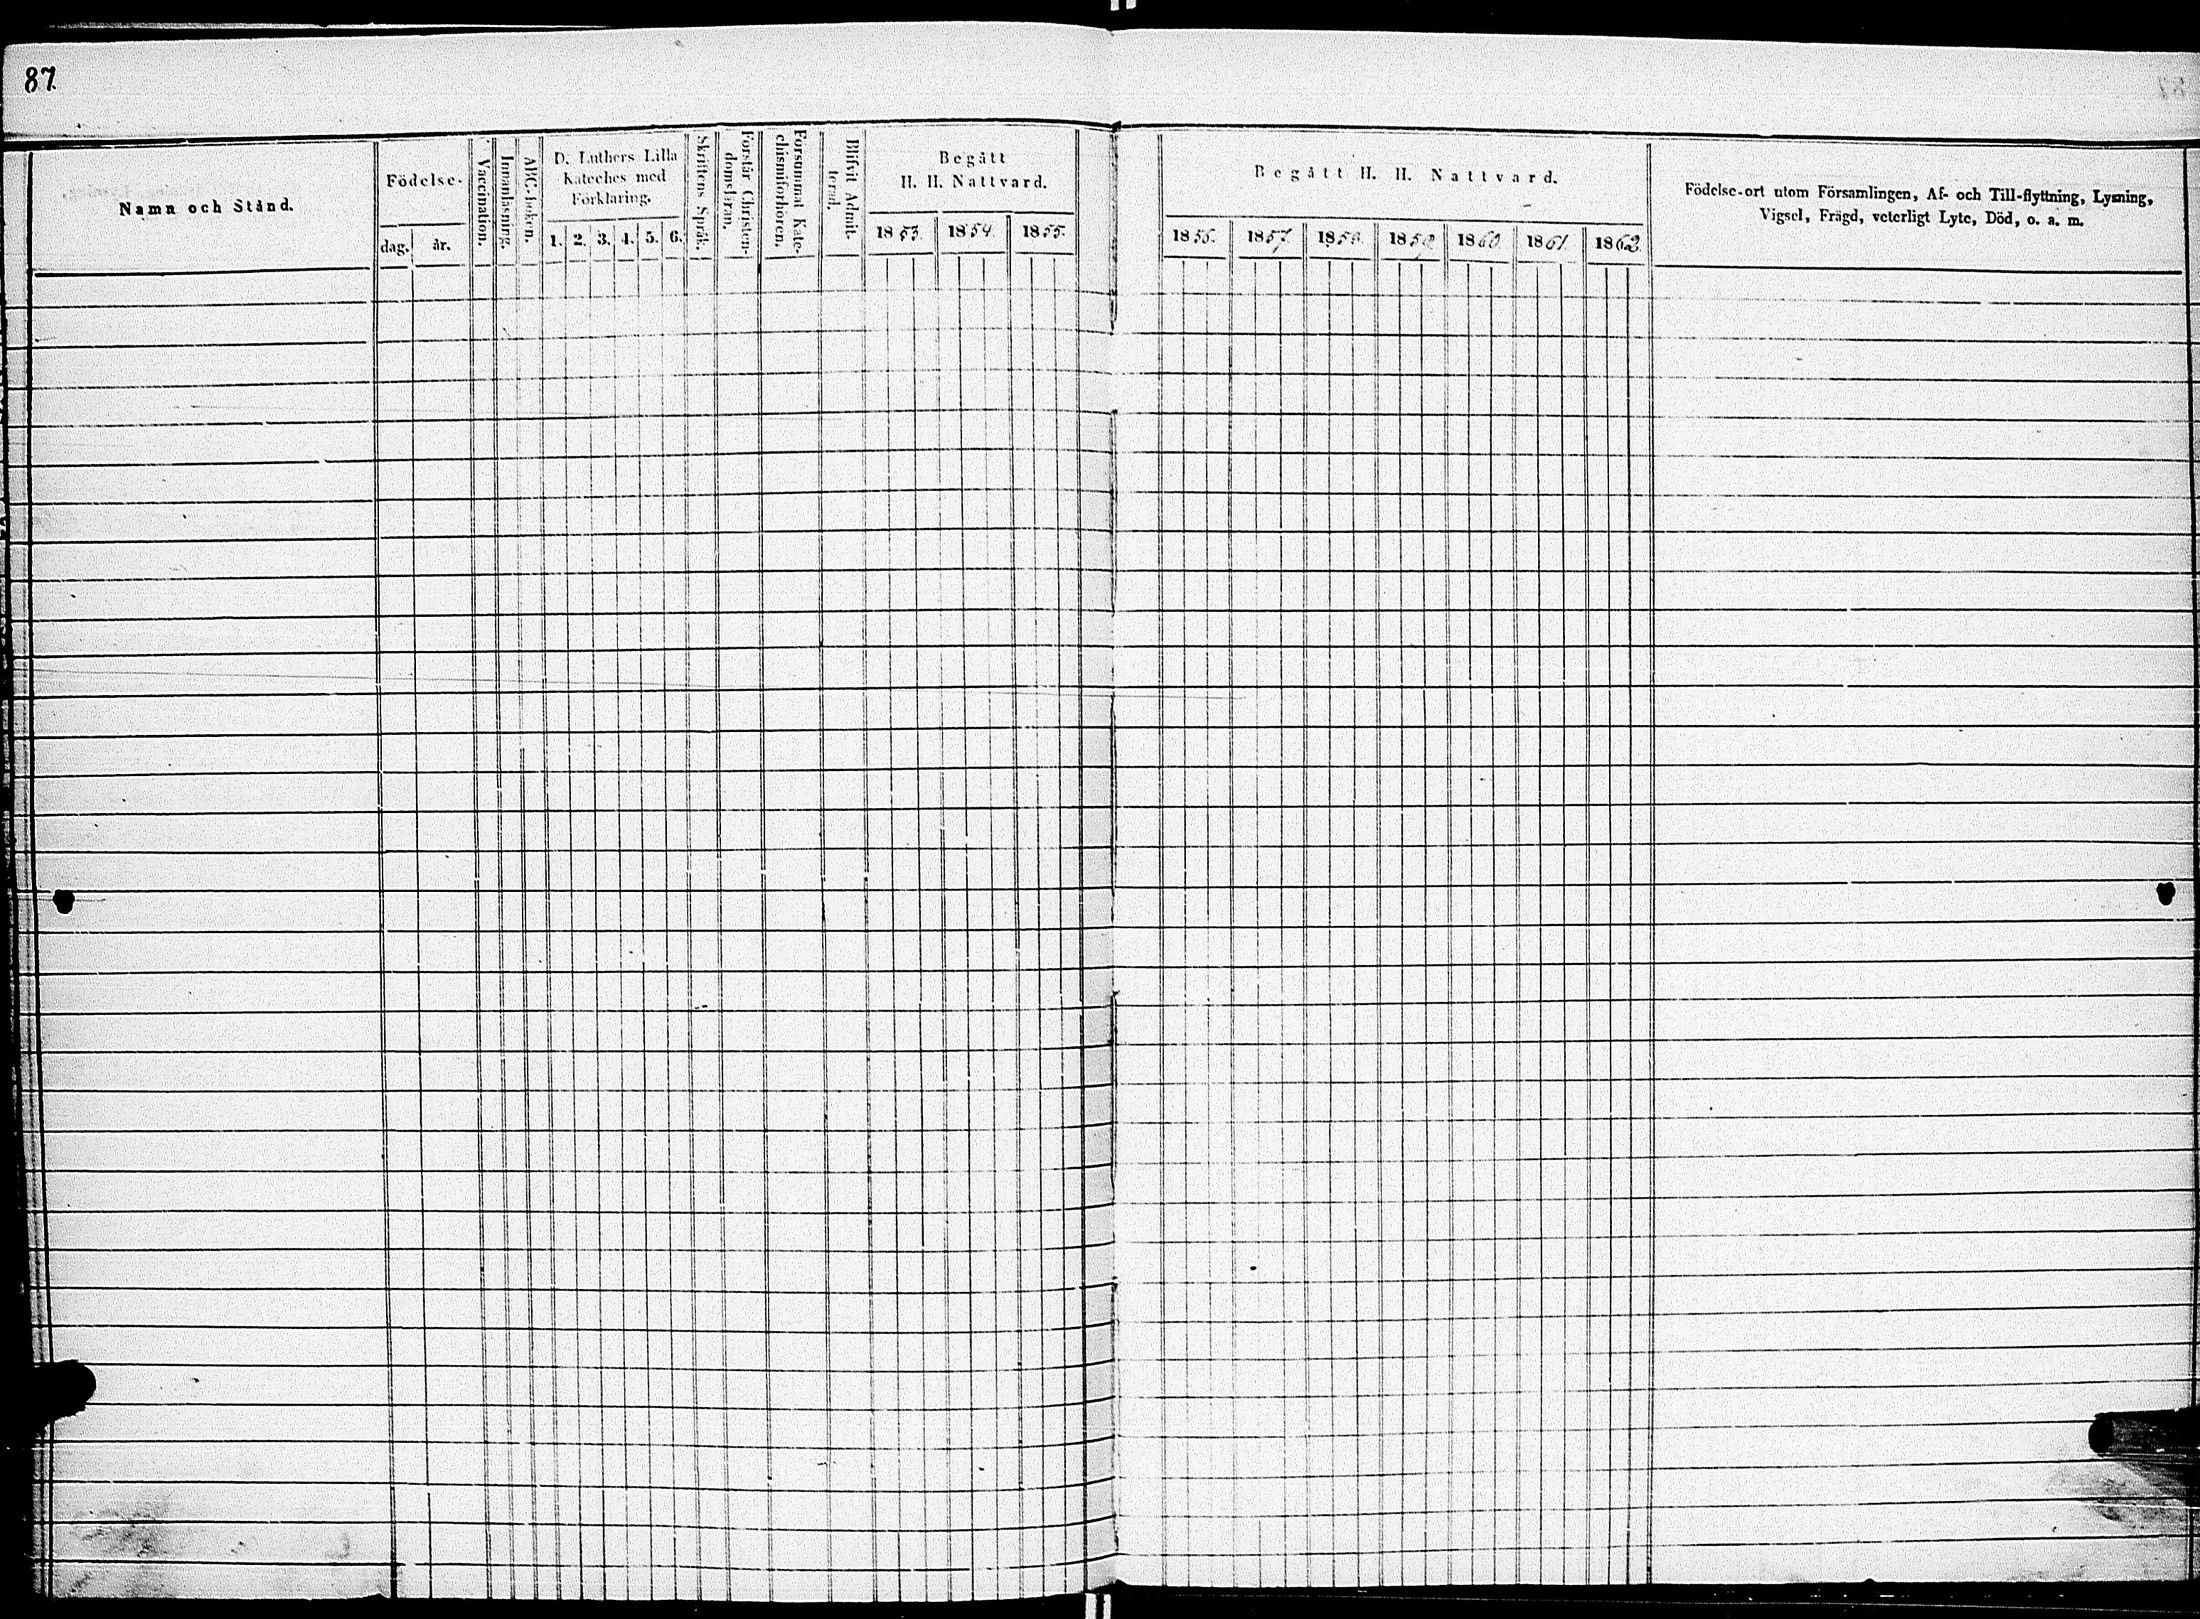 87.
Namn och Stånd.
Födelse-
dag. år.
Vaccination.
Innanläsning.
ABC-boken.
D. Luthers Lilla
Kateches med
Förklaring.
1. 2. 3. 4. 5. 6.
Skriftens Språk.
Förstår Christen-
domsläran.
Försummat Kate-
chismiförhören.
Blifvit Admit-
terad.
Begått
H. H. Nattvard.
1853. 1854. 1855.
Begått H. H. Nattvard.
1856. 1857. 1858. 1859. 1860. 1861. 1862.
Födelse-ort utom Församlingen, Af- och Till-flyttning, Lysning,
Vigsel, Frägd, veterligt Lyte, Död, o. a. m.